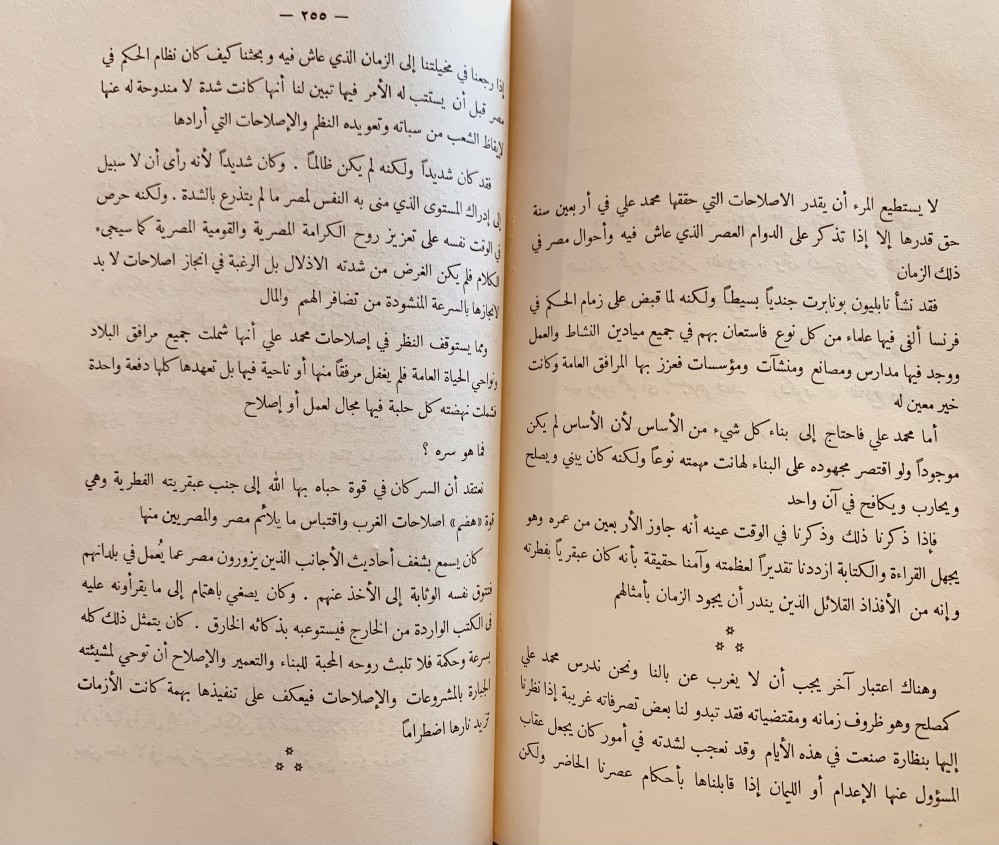 لا يستطيع المرء أن يقدر الاصلاحات التي حققها محمد علي في أربعين سنة
حق قدرها إلا إذا تذكر على الدوام العصر الذي عاش فيه وأحوال مصر في
ذلك الزمان
فقد نشأ نابليون بونابرت جندياً بسيطاً ولكنه لما قبض على زمام الحكم في
فرنسا ألفى فيها علماء من كل نوع فاستعان بهم في جميع ميادين النشاط والعمل
ووجد فيها مدارس ومصانع ومنشآت ومؤسسات فعزز بها المرافق العامة وكانت
خير معين له
أما محمد علي فاحتاج إلى بناء كل شيء من الأساس لأن الأساس لم يكن
موجوداً ولو اقتصر مجهوده على البناء لهانت مهمته نوعاً ولكنه كان يبني ويصلح
ويحارب ويكافح في آن واحد
فإذا ذكرنا ذلك وذكرنا في الوقت عينه أنه جاوز الأربعين من عمره وهو
يجهل القراءة والكتابة ازددنا تقديراً لعظمته وآمنا حقيقة بأنه كان عبقرياً بفطرته
وإنه من الأفذاذ القلائل الذين يندر أن يجود الزمان بأمثالهم
وهناك اعتبار آخر يجب أن لا يغرب عن بالنا ونحن ندرس محمد علي
كمصلح وهو ظروف زمانه ومقتضياته فقد تبدو لنا بعض تصرفاته غريبة إذا نظرنا
إليها بنظارة صنعت في هذه الأيام وقد نعجب لشدته في أمور كان يجعل عقاب
المسؤول عنها الإعدام أو الليمان إذا قابلناها بأحكام عصرنا الحاضر ولكن
— ٢٥٥ —
إذا رجعنا في مخيلتنا إلى الزمان الذي عاش فيه وبحثنا كيف كان نظام الحكم في
مصر قبل أن يستتب له الأمر فيها تبين لنا أنها كانت شدة لا مندوحة له عنها
لإيقاظ الشعب من سباته وتعويده النظم والإصلاحات التي أرادها
فقد كان شديداً ولكنه لم يكن ظالماً . وكان شديداً لأنه رأى أن لا سبيل
إلى إدراك المستوى الذي منى به النفس لمصر ما لم يتذرع بالشدة . ولكنه حرص
في الوقت نفسه على تعزيز روح الكرامة المصرية والقومية المصرية كما سيجيء
الكلام فلم يكن الغرض من شدته الاذلال بل الرغبة في انجاز اصلاحات لا بد
لانجازها بالسرعة المنشودة من تضافر الهمم والمال
ومما يستوقف النظر في إصلاحات محمد علي أنها شملت جميع مرافق البلاد
ونواحي الحياة العامة فلم يغفل مرفقاً منها أو ناحية فيها بل تعهدها كلها دفعة واحدة
فشملت نهضته كل حلبة فيها مجال لعمل أو إصلاح
فما هو سره ؟
نعتقد أن السر كان في قوة حباه بها الله إلى جنب عبقريته الفطرية وهي
قوة «هضم» اصلاحات الغرب واقتباس ما يلائم مصر والمصريين منها
كان يسمع بشغف أحاديث الأجانب الذين يزورون مصر عما يُعمل في بلدانهم
فتتوق نفسه الوثابة إلى الأخذ عنهم . وكان يصغي باهتمام إلى ما يقرأونه عليه
في الكتب الواردة من الخارج فيستوعبه بذكائه الخارق . كان يتمثل ذلك كله
بسرعة وحكمة فلا تلبث روحه المحبة للبناء والتعمير والإصلاح أن توحي لمشيئته
الجبارة بالمشروعات والإصلاحات فيعكف على تنفيذها بهمة كانت الأزمات
تزيد نارها اضطراماً